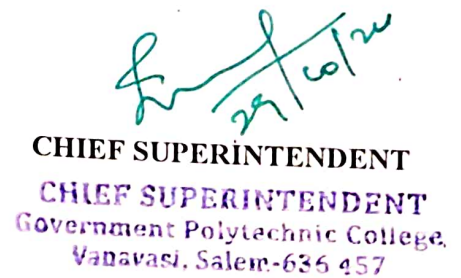 29/10/24
CHIEF SUPERINTENDENT
CHIEF SUPERINTENDENT
Government Polytechnic College,
Vanavasi, Salem-636 457